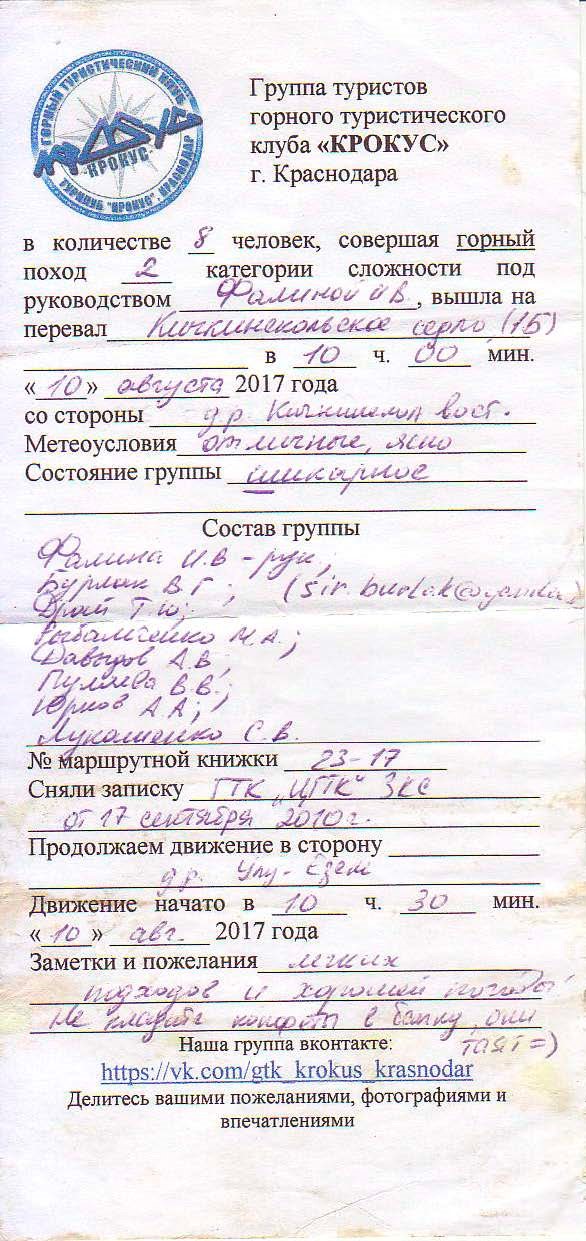 ГОРНЫЙ ТУРИСТИЧЕСКИЙ КЛУБ
КРОКУС
ТУРКЛУБ "КРОКУС", КРАСНОДАР
Группа туристов
горного туристического
клуба «КРОКУС»
г. Краснодара
в количестве 8 человек, совершая горный
поход 2 категории сложности под
руководством Фалиной И.В., вышла на
перевал Кичкинекольское седло (1Б)
в 10 ч. 00 мин.
«10» августа 2017 года
со стороны др. Кичкинекол вост.
Метеоусловия отличные, ясно
Состояние группы шикарное
Состав группы
Фалина И.В - рук;
Бурлак В Г; (sir.burlak@yandex
Драй Т Ю;
Рыбалченко М.А.;
Давыдов А.В;
Пуляева В.В.;
Юрков А.А;
Лукашенко С.В.
№ маршрутной книжки 23-17
Сняли записку ГТК „ЦГТК" ЗКС
от 17 сентября 2010 г.
Продолжаем движение в сторону
др. Улу-Езен
Движение начато в 10 ч. 30 мин.
«10» авг. 2017 года
Заметки и пожелания легких
подходов и хорошей погоды!
Не кладите конфеты в банку, они
таят =)
Наша группа вконтакте:
https://vk.com/gtk_krokus_krasnodar
Делитесь вашими пожеланиями, фотографиями и
впечатлениями